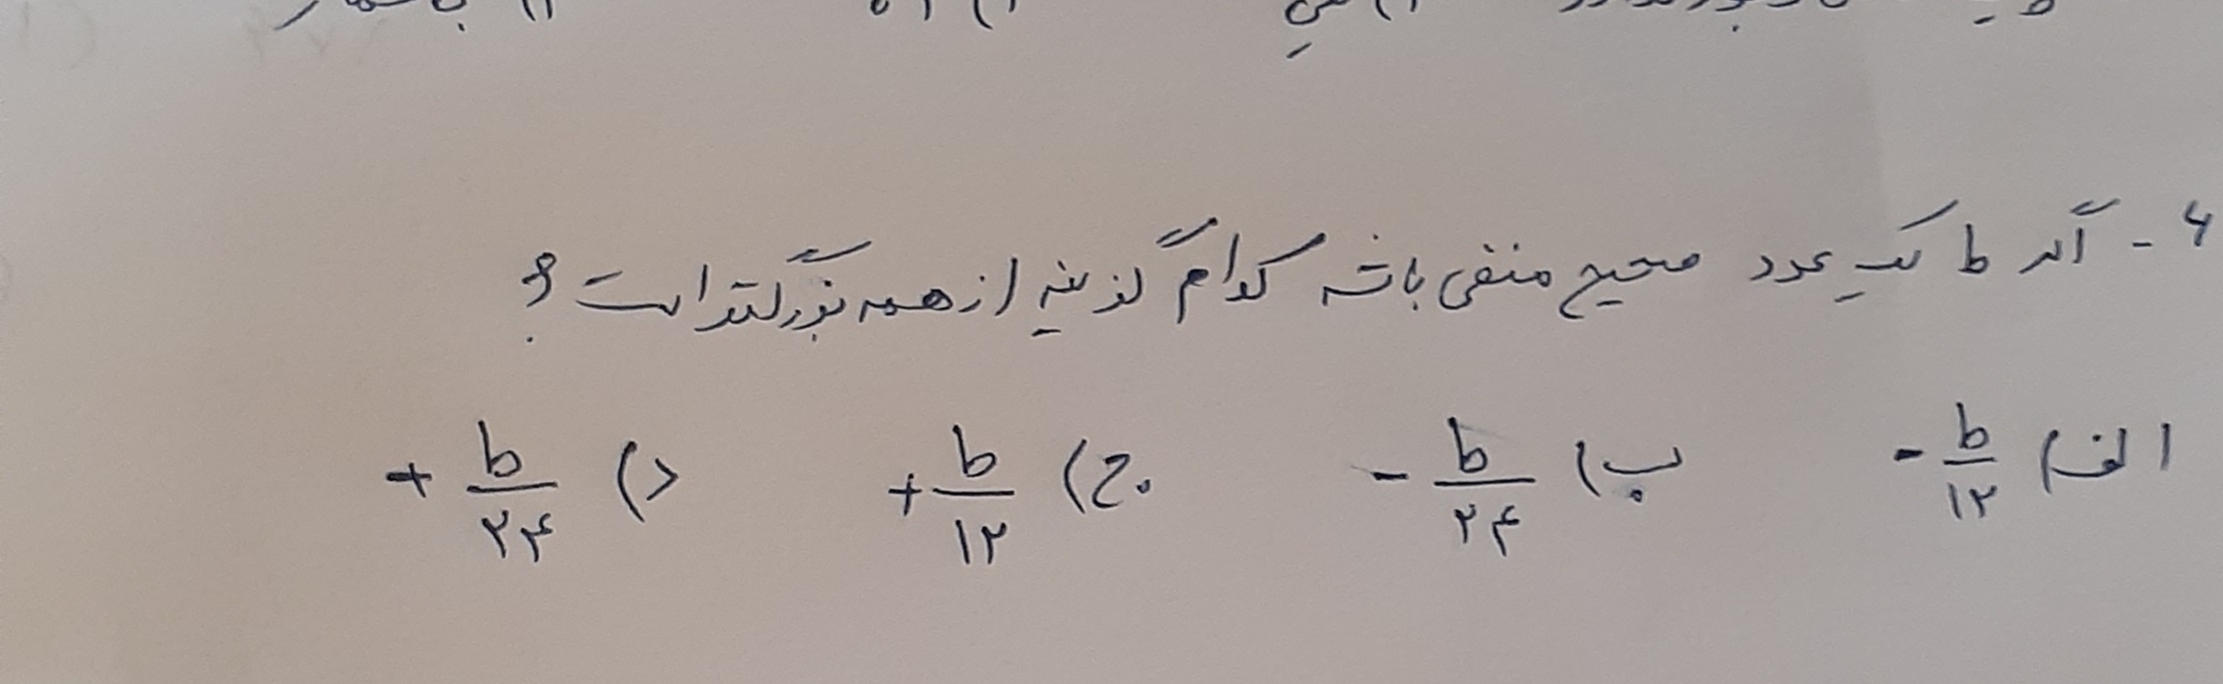 ۶- اگر b یک عدد صحیح منفی باشد کدام گزینه از همه بزرگتر است؟
الف) -b/۱۲ ب) -b/۲۴ ج) +b/۱۲ د) +b/۲۴